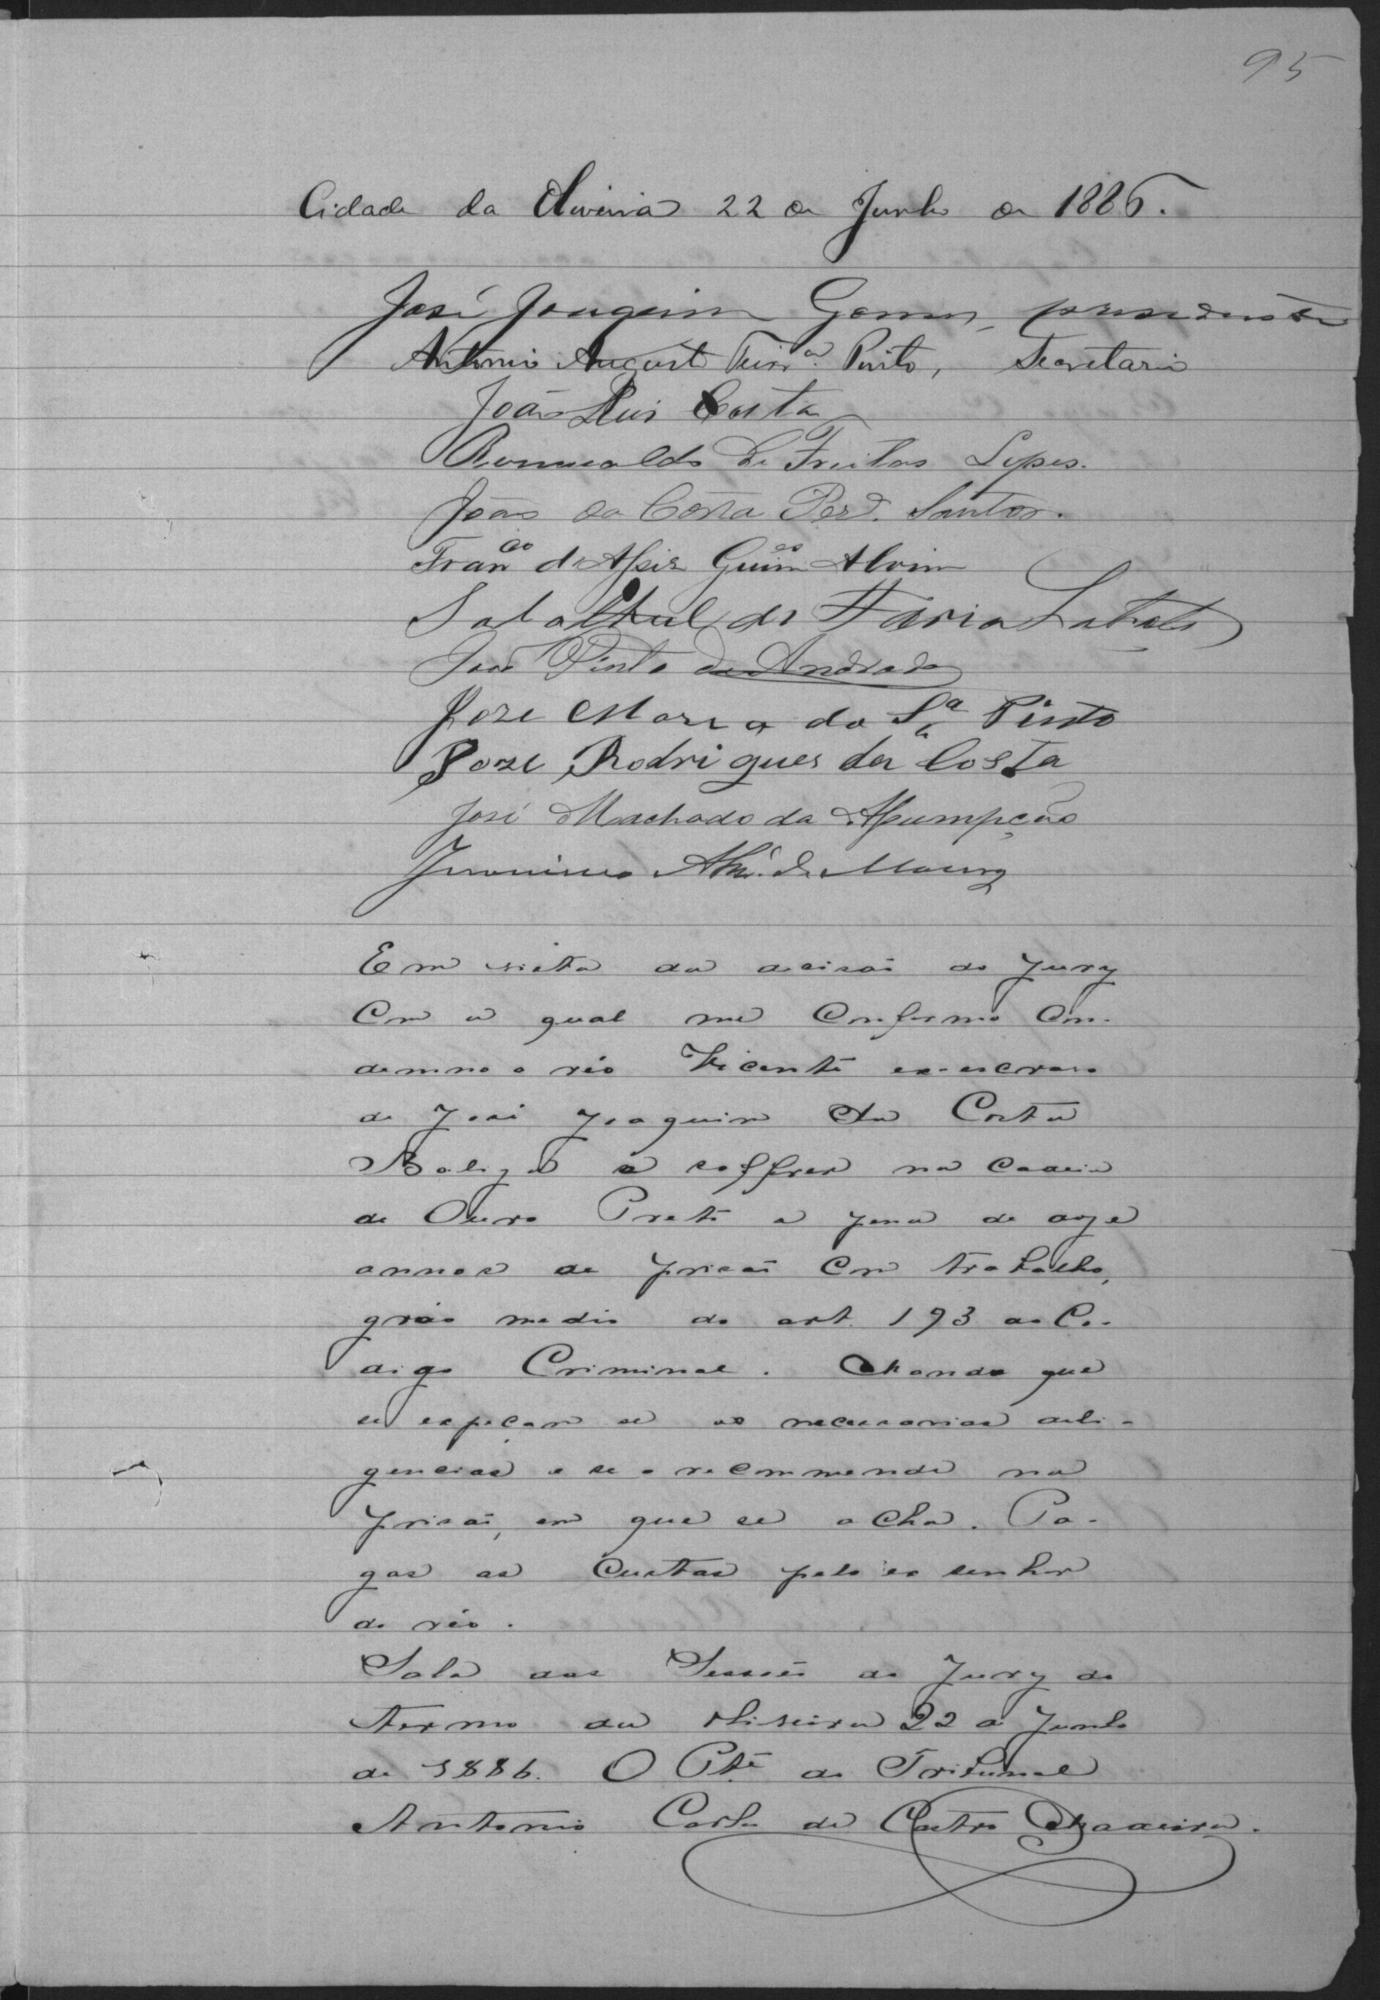 95
Cidade da Oliveira 22 de Junho de 1886.
José Joaquim Gomes, presidente
Antonio Augusto Teixrª. Pinto, Secretario
João Luis Costa
Romualdo de Freitas Lopes.
João da Costa Per.ª Santos.
Franco de Assis Guimes Alvim
de Faria Lobato
José Pinto de Andrade
Joze Maria da Sª Pinto
Joze Rodrigues da Costa
José Machado da Assumpção
Jeronimo de Moura
Em vista da decisão do Jury
com a qual me conformo con-
demno o réo Vicente ex-escravo
de José Joaquim da Costa
a soffrer na cadeia
de Ouro Preto a pena de doze
annos de prisão com trabalho,
gráo medio do art. 193 do Co-
digo Criminal. Mando que
se expeçam se as necessarias deli-
gencias e se o recommende na
prisão, em que se acha. Pa-
gas as custas pelo ex senhor
do réo.
Sala das Sessões do Jury do
termo da Oliveira 22 de Junho
de 1886. O Pte. do Tribunal
Antonio Carlos de Castro Madeira.